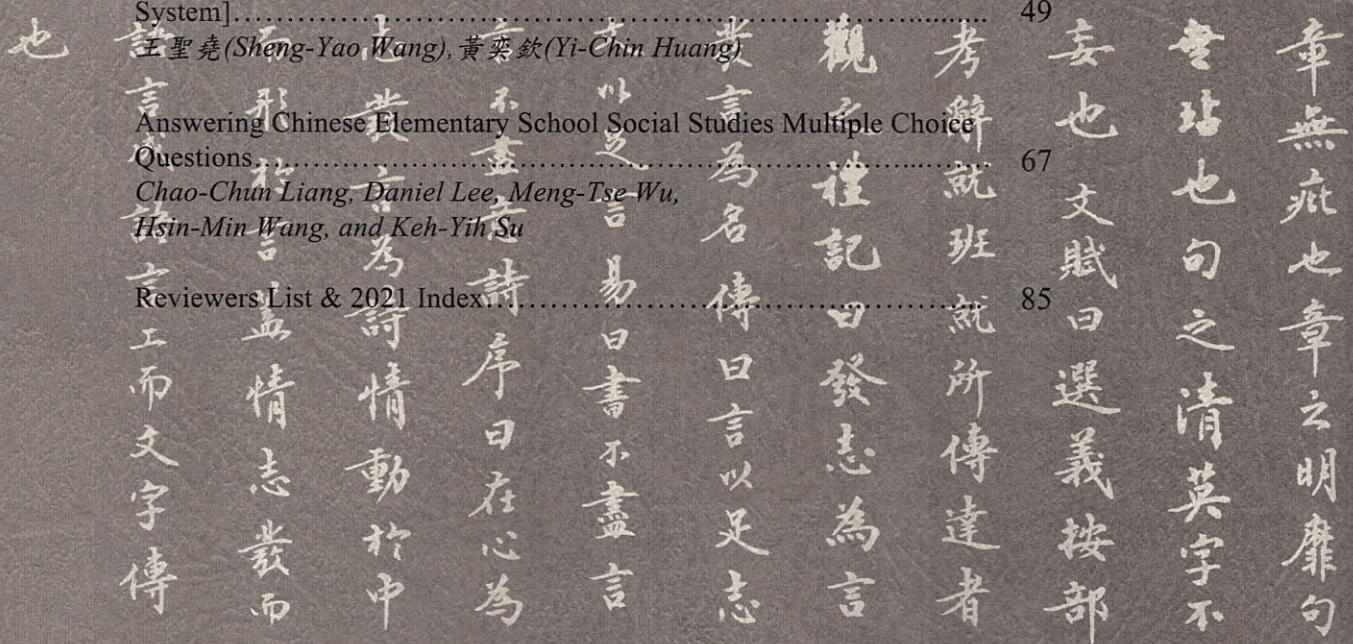 System]........................................................................ 49
王聖堯(Sheng-Yao Wang), 黃奕欽(Yi-Chin Huang)
Answering Chinese Elementary School Social Studies Multiple Choice
Questions........................................................................ 67
Chao-Chun Liang, Daniel Lee, Meng-Tse Wu,
Hsin-Min Wang, and Keh-Yih Su
Reviewers List & 2021 Index................................................ 85
章無疵也章之明靡句
無玷也句之清英字不
妄也文賦曰選義按部
考辭就班就所傳達者
觀之禮記曰發志為言
發言為名傳曰言以足志
文以足言易曰書不盡言
言不盡意詩序曰在心為
志發言為詩情動於中
而形於言蓋情志發而
語言成語言工而文字傳
也